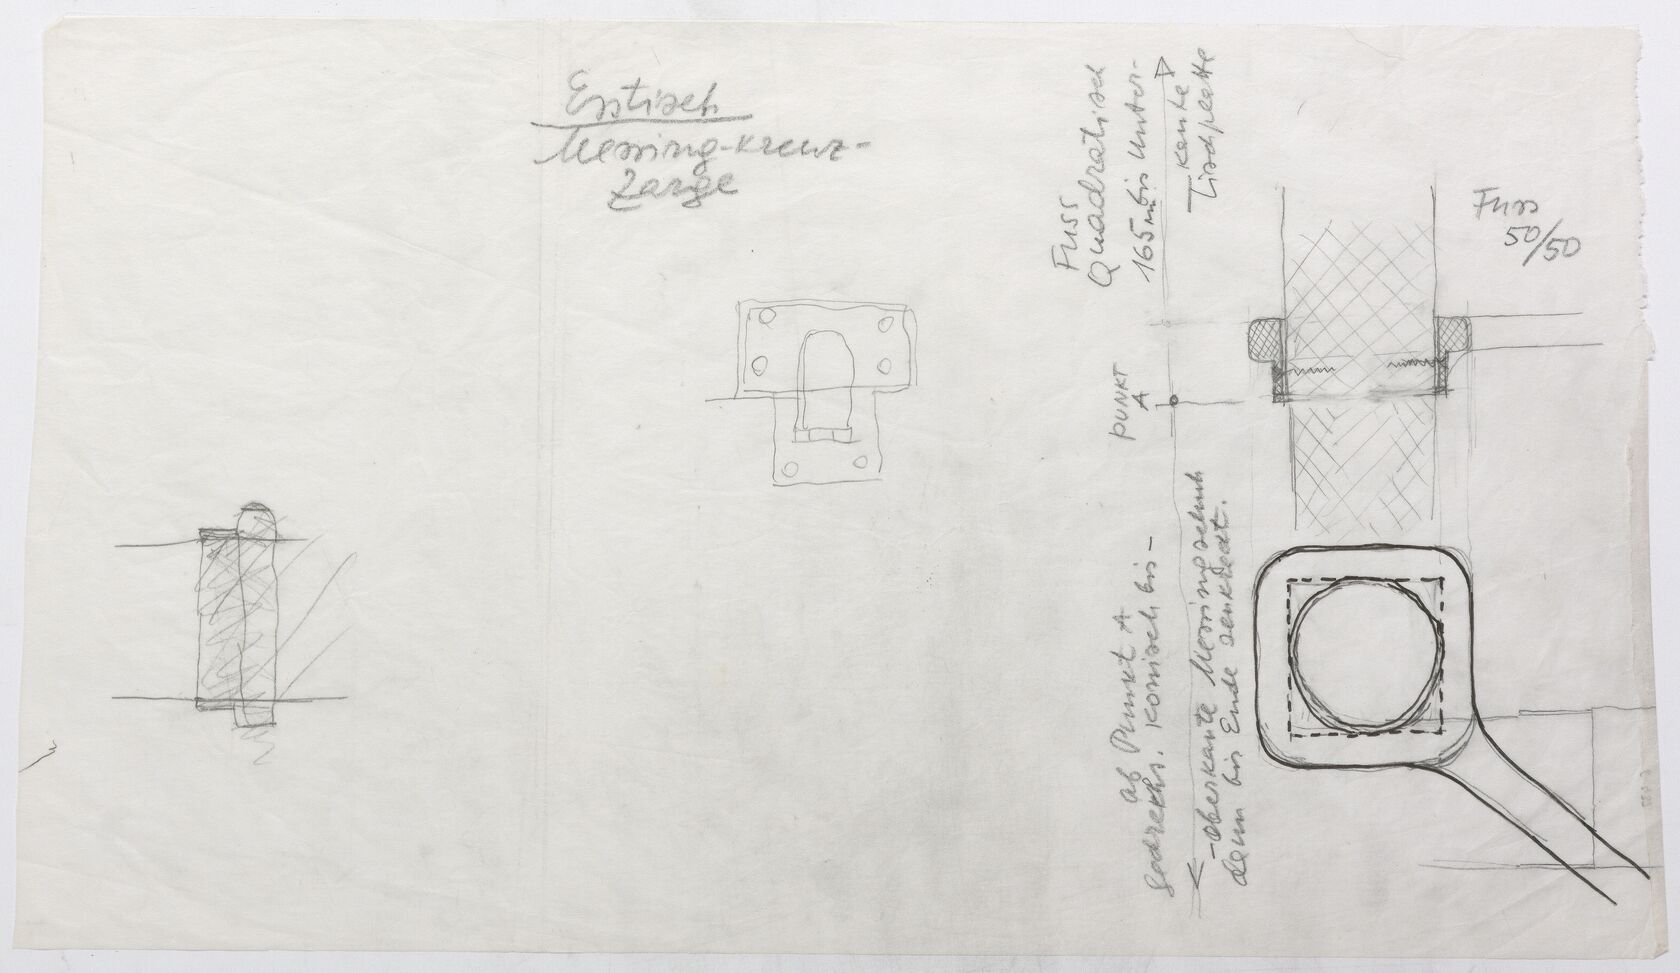 Esstisch
Messing-Kreuz-
Zarge
Fuss
Quadratisch
165 mm bis Unter-
kante
Tischplatte
Fuss
50/50
PUNKT
A
ab Punkt A
gedreht. Konisch bis -
- Oberkante Messingschuh
dann bis Ende senkrecht.